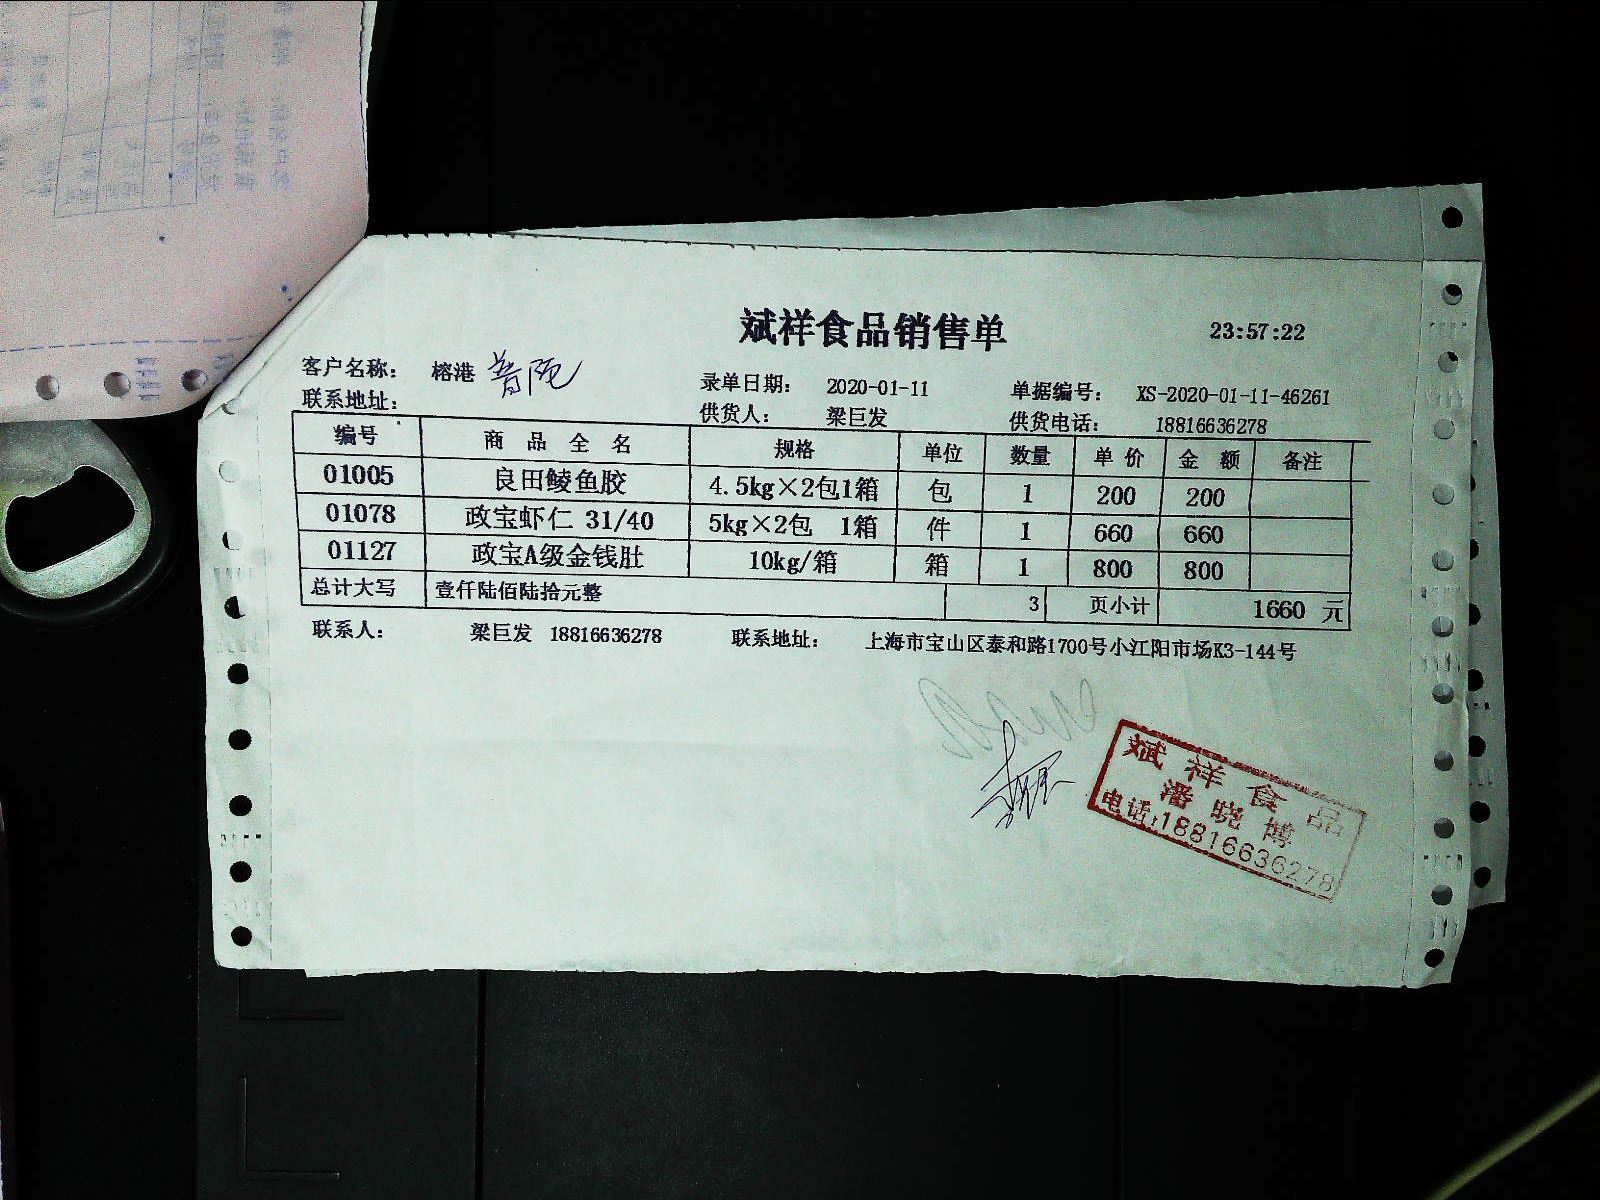 斌祥食品销售单 23:57:22
客户名称： 榕港 普陀 录单日期： 2020-01-11 单据编号： XS-2020-01-11-46261
联系地址： 供货人： 梁巨发 供货电话： 18816636278
编号 商品全名 规格 单位 数量 单价 金额 备注
01005 良田鲮鱼胶 4.5kg×2包1箱 包 1 200 200
01078 政宝虾仁 31/40 5kg×2包 1箱 件 1 660 660
01127 政宝A级金钱肚 10kg/箱 箱 1 800 800
总计大写 壹仟陆佰陆拾元整 3 页小计 1660 元
联系人： 梁巨发 18816636278 联系地址： 上海市宝山区泰和路1700号小江阳市场K3-144号
斌祥食品
潘晓博
电话:18816636278